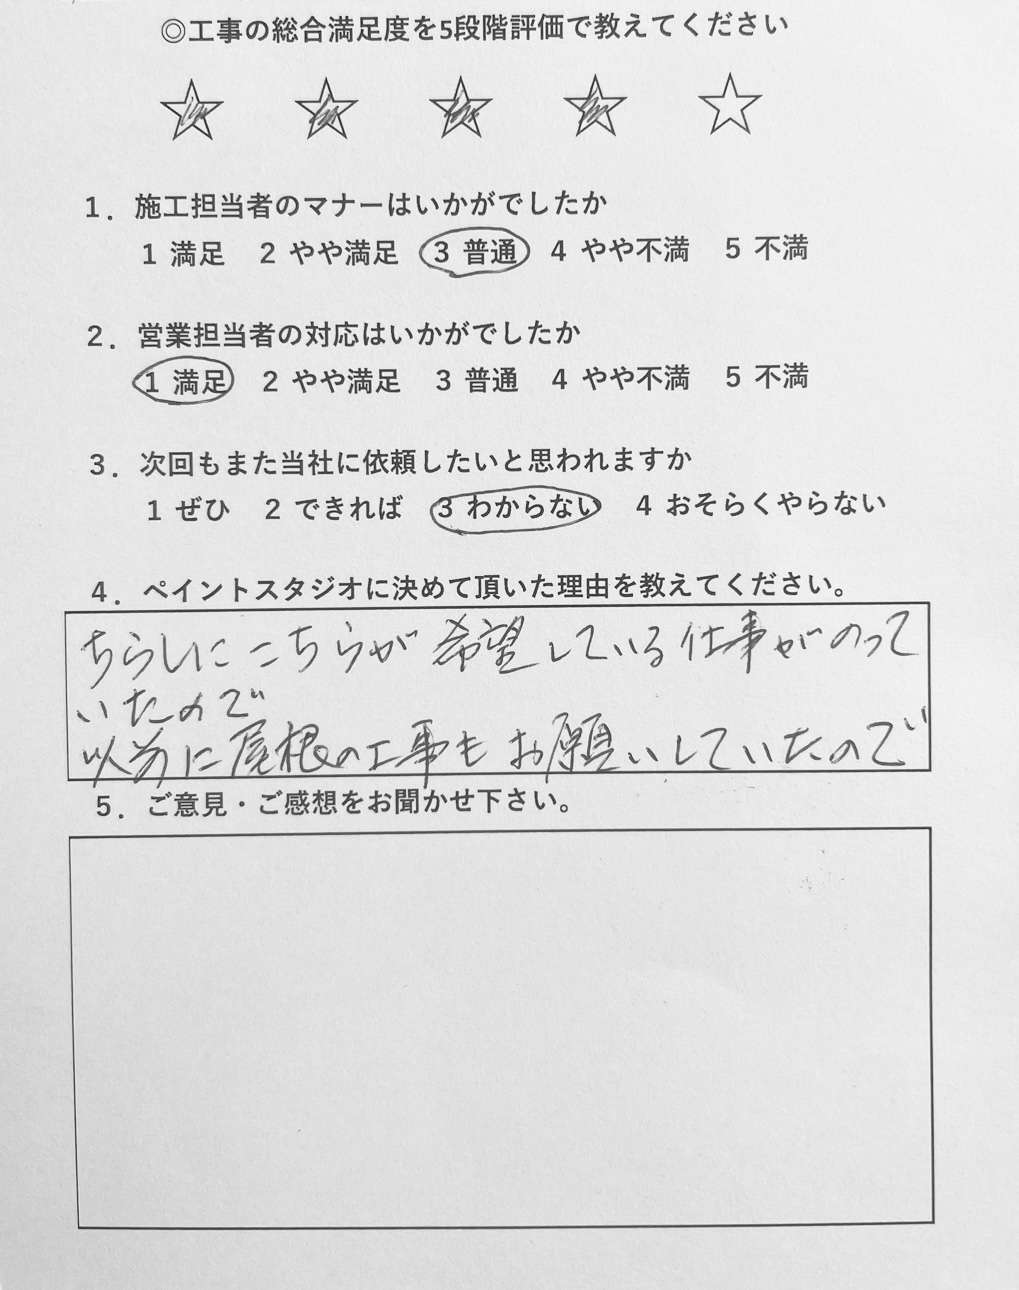 ◎工事の総合満足度を5段階評価で教えてください
1．施工担当者のマナーはいかがでしたか
1 満足 2 やや満足 3 普通 4 やや不満 5 不満
2．営業担当者の対応はいかがでしたか
1 満足 2 やや満足 3 普通 4 やや不満 5 不満
3．次回もまた当社に依頼したいと思われますか
1 ぜひ 2 できれば 3 わからない 4 おそらくやらない
4．ペイントスタジオに決めて頂いた理由を教えてください。
ちらしにこちらが希望している仕事がのって
いたので
以前に屋根の工事もお願いしていたので
5．ご意見・ご感想をお聞かせ下さい。